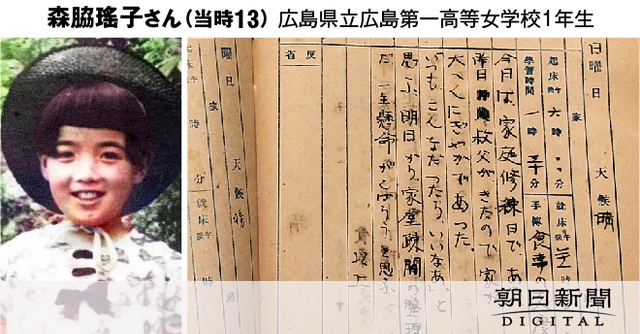 森脇瑤子さん(当時13) 広島県立広島第一高等女学校1年生
日曜日
天候 晴
起床 午前 六時
学習時間 一時 三十分
手伝 食事の
今日は、家庭修練日で、あ
昨日 叔父がきたので、家が
大へんにぎやかであった。
「いつもこんなだったら、いいなあ」と
思ふ。明日から、家屋疎開の整理
だ。一生懸命がんばらうと思ふ。
反省
曜日
天候 晴
朝日新聞
DIGITAL